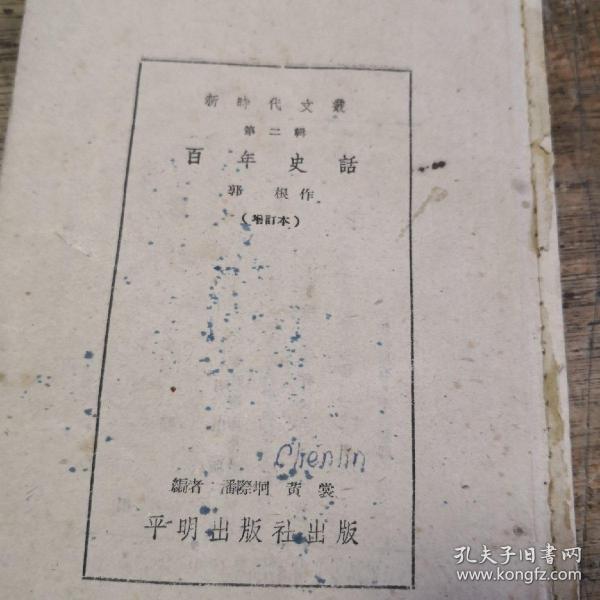 新時代文叢
第二輯
百年史話
郭根作
（增訂本）
Chenlin
編者 潘際坰 黃裳
平明出版社出版
孔夫子旧书网
www.kongfz.com